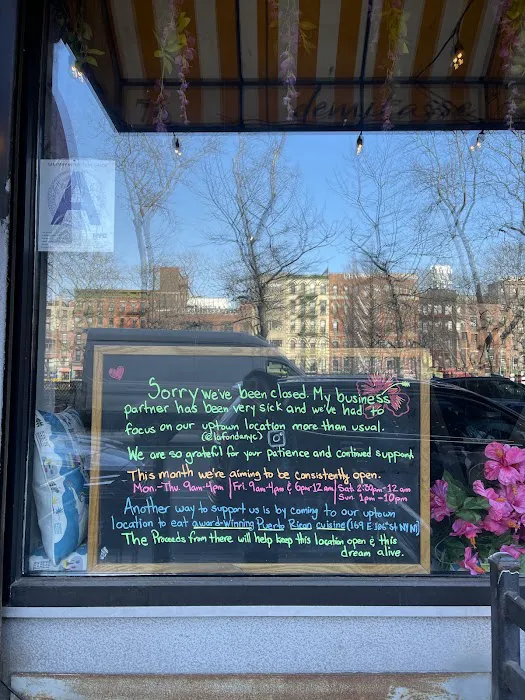 demitasse
A
Sorry we've been closed. My business
partner has been very sick and we've had to
focus on our uptown location more than usual.
(@lafondanyc)
We are so grateful for your patience and continued support
This month we're aiming to be consistently open.
Mon.-Thu. 9am-4pm | Fri. 9am-4pm & 6pm-12am | Sat. 2:30pm-12am
Sun. 1pm-10pm
Another way to support us is by coming to our uptown
location to eat award-winning Puerto Rican cuising (169 E 106th St NY NY)
The Proceeds from there will help keep this location open & this
dream alive.